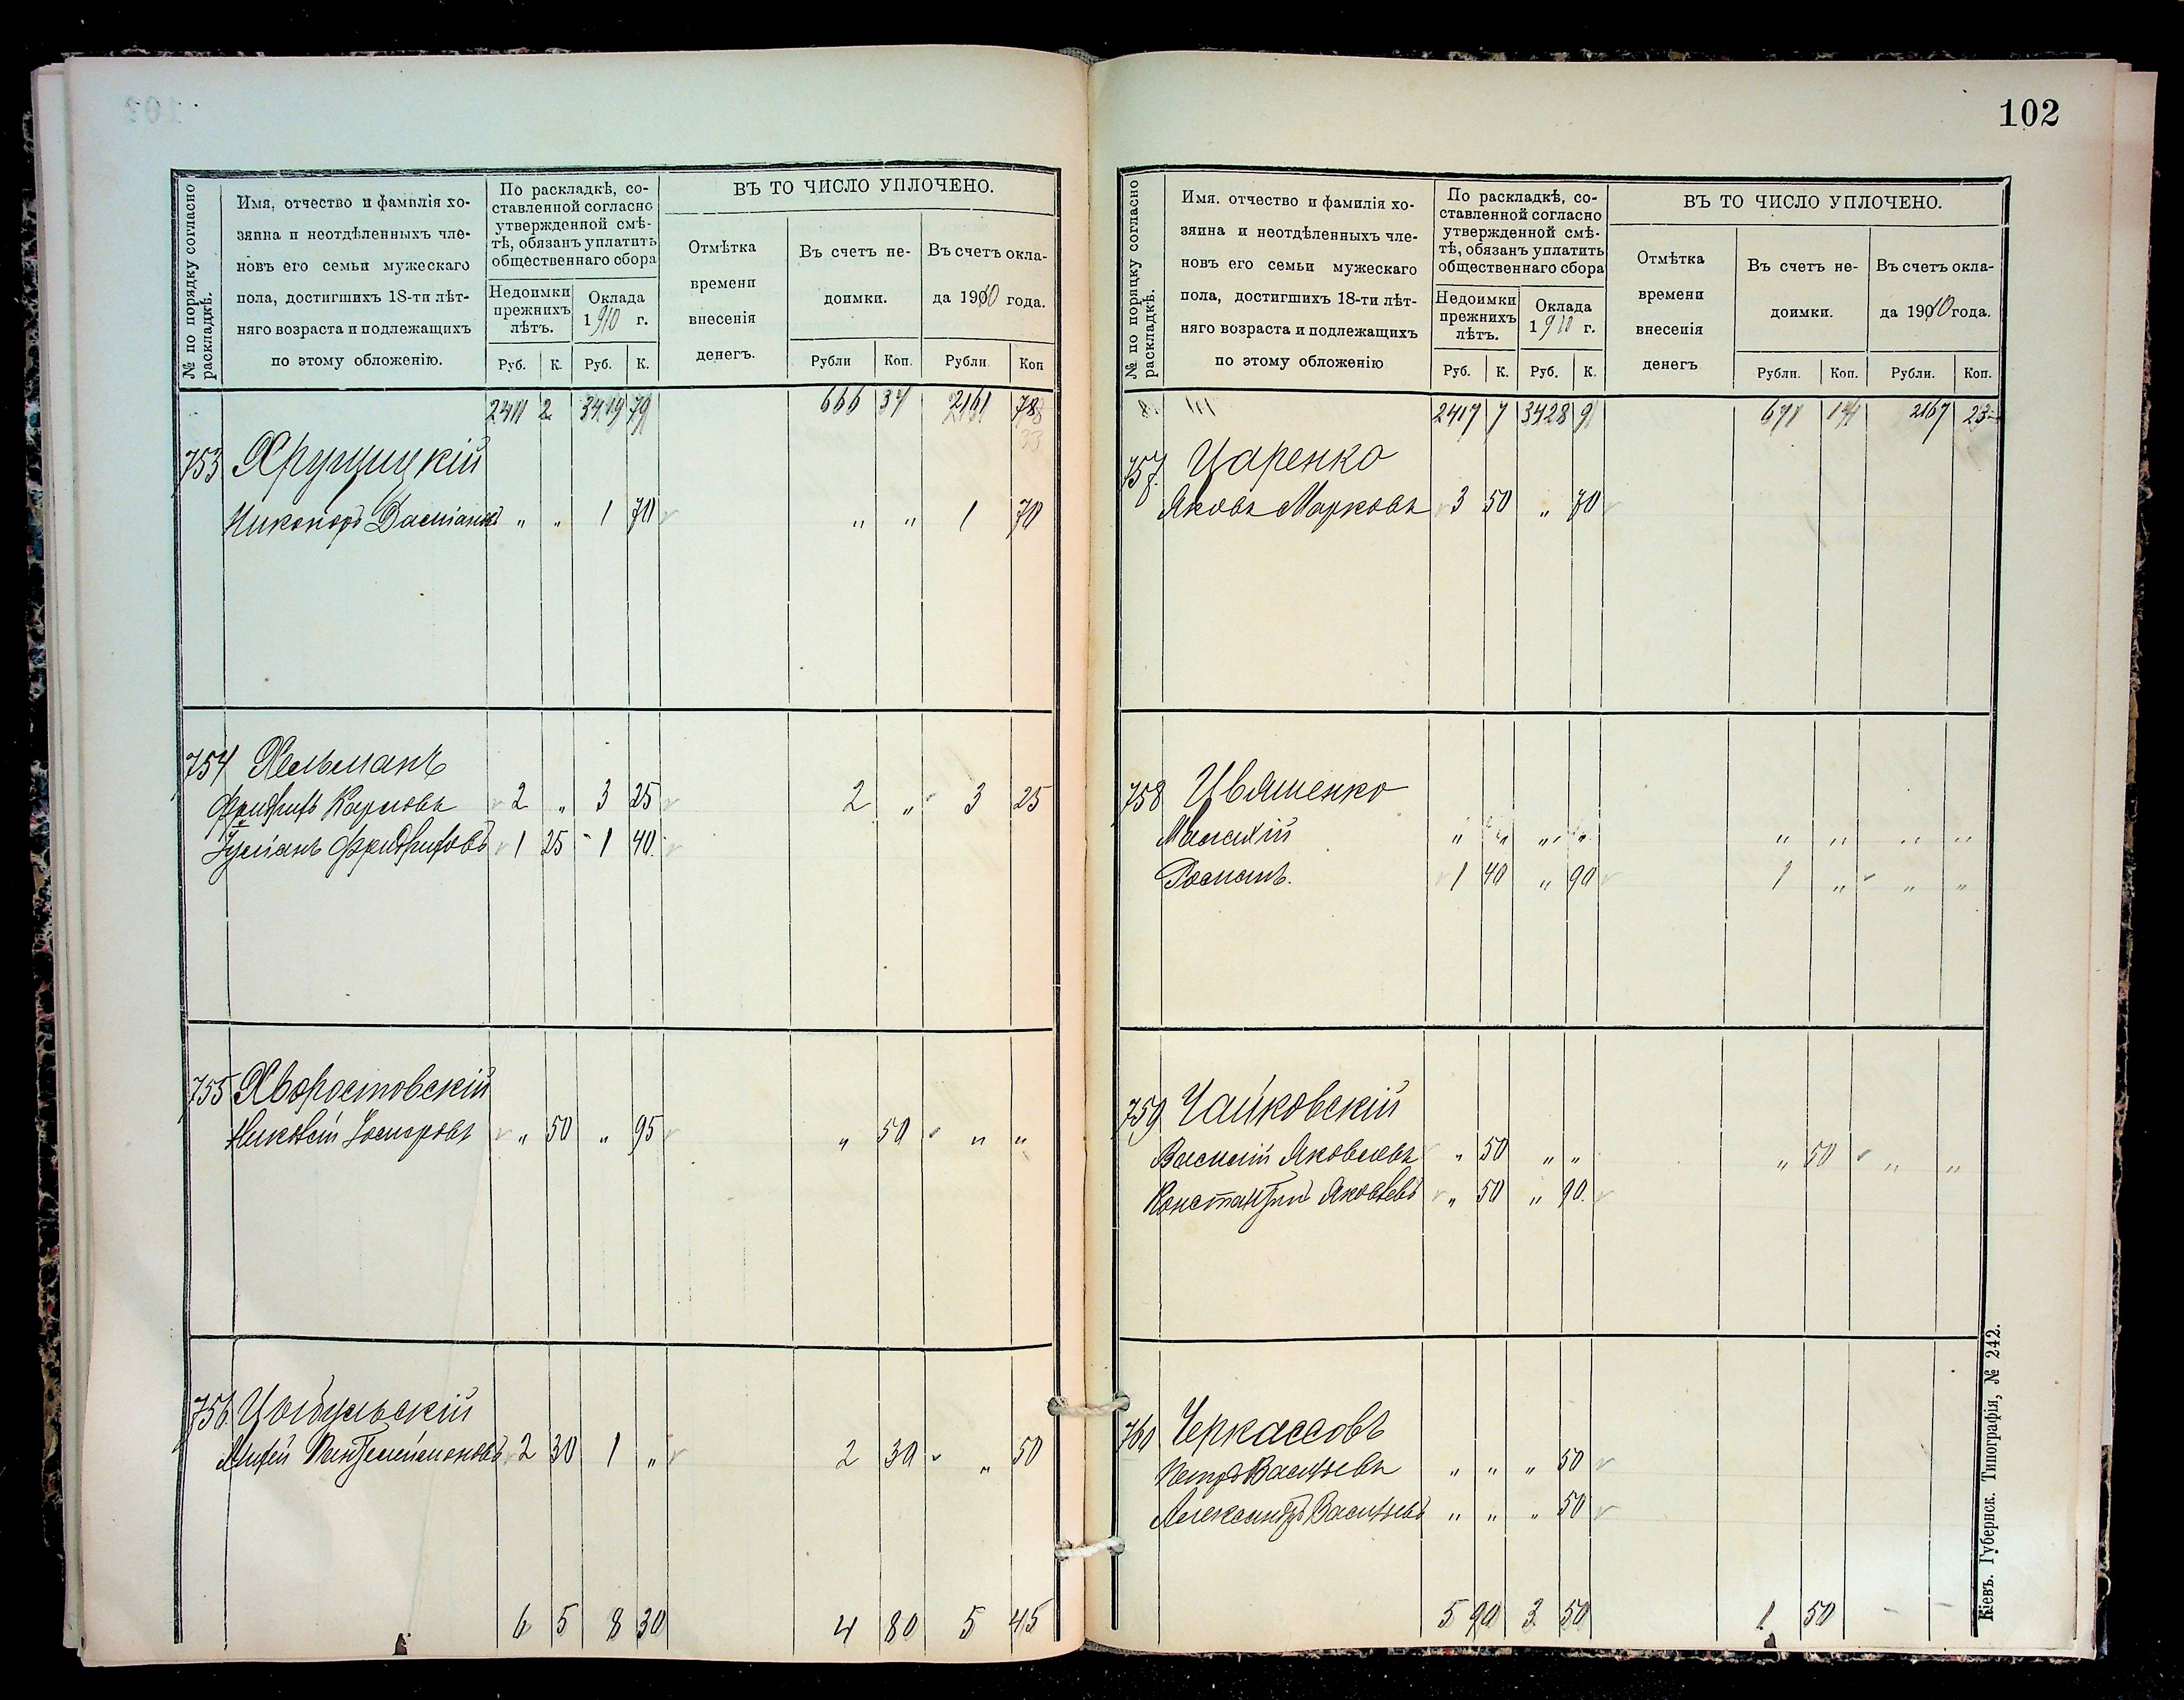 102
№ по порядку согласно раскладкѣ.
Имя, отчество и фамилія хо-
зяина и неотдѣленныхъ чле-
новъ его семьи мужескаго
пола, достигшихъ 18-ти лѣт-
няго возраста и подлежащихъ
по этому обложенію.
По раскладкѣ, со-
ставленной согласно
утвержденной смѣ-
тѣ, обязанъ уплатить
общественнаго сбора
Недоимки
прежнихъ
лѣтъ.
Оклада
1910 г.
Руб. К. Руб. К.
ВЪ ТО ЧИСЛО УПЛОЧЕНО.
Отмѣтка
времени
внесенія
денегъ.
Въ счетъ не-
доимки.
Въ счетъ окла-
да 1910 года.
Рубли Коп. Рубли Коп
2411 2 3419 79 666 34 2161 78
753 Хрущицкій
Никоноръ " " 1 70 " " 1 70
754 Хельманъ
Фридрихъ Карловъ 2 " 3 25 2 " 3 25
Фридриховъ 1 25 1 40
755 Хворостовскій
" 50 " 95 " 50 " "
756 Цыбульскій
2 30 1 " 2 30 " 50
6 5 8 30 4 80 5 45
102
№ по порядку согласно раскладкѣ.
Имя. отчество и фамилія хо-
зяина и неотдѣленныхъ чле-
новъ его семьи мужескаго
пола, достигшихъ 18-ти лѣт-
няго возраста и подлежащихъ
по этому обложенію
По раскладкѣ, со-
ставленной согласно
утвержденной смѣ-
тѣ, обязанъ уплатить
общественнаго сбора
Недоимки
прежнихъ
лѣтъ.
Оклада
1910 г.
Руб. К. Руб. К.
ВЪ ТО ЧИСЛО УПЛОЧЕНО.
Отмѣтка
времени
внесенія
денегъ
Въ счетъ не-
доимки.
Въ счетъ окла-
да 1910 года.
Рубли. Коп. Рубли. Коп.
2417 7 3428 9 671 14 2167 23
757 Царенко
Яковъ Марковъ 3 50 " 70
758 Цвяшенко
" " " " " " " "
Романъ. 1 40 " 90 1 " " "
759 Чайковскій
Василій Яковлевъ " 50 " " " 50 " "
Константинъ Яковлевъ " 50 " 90.
760 Черкассовъ
Петръ Васильевъ " " " 50
Александръ Васильевъ " " " 50
5 90 3 50 1 50 - -
Кіевъ. Губернск. Типографія, № 242.